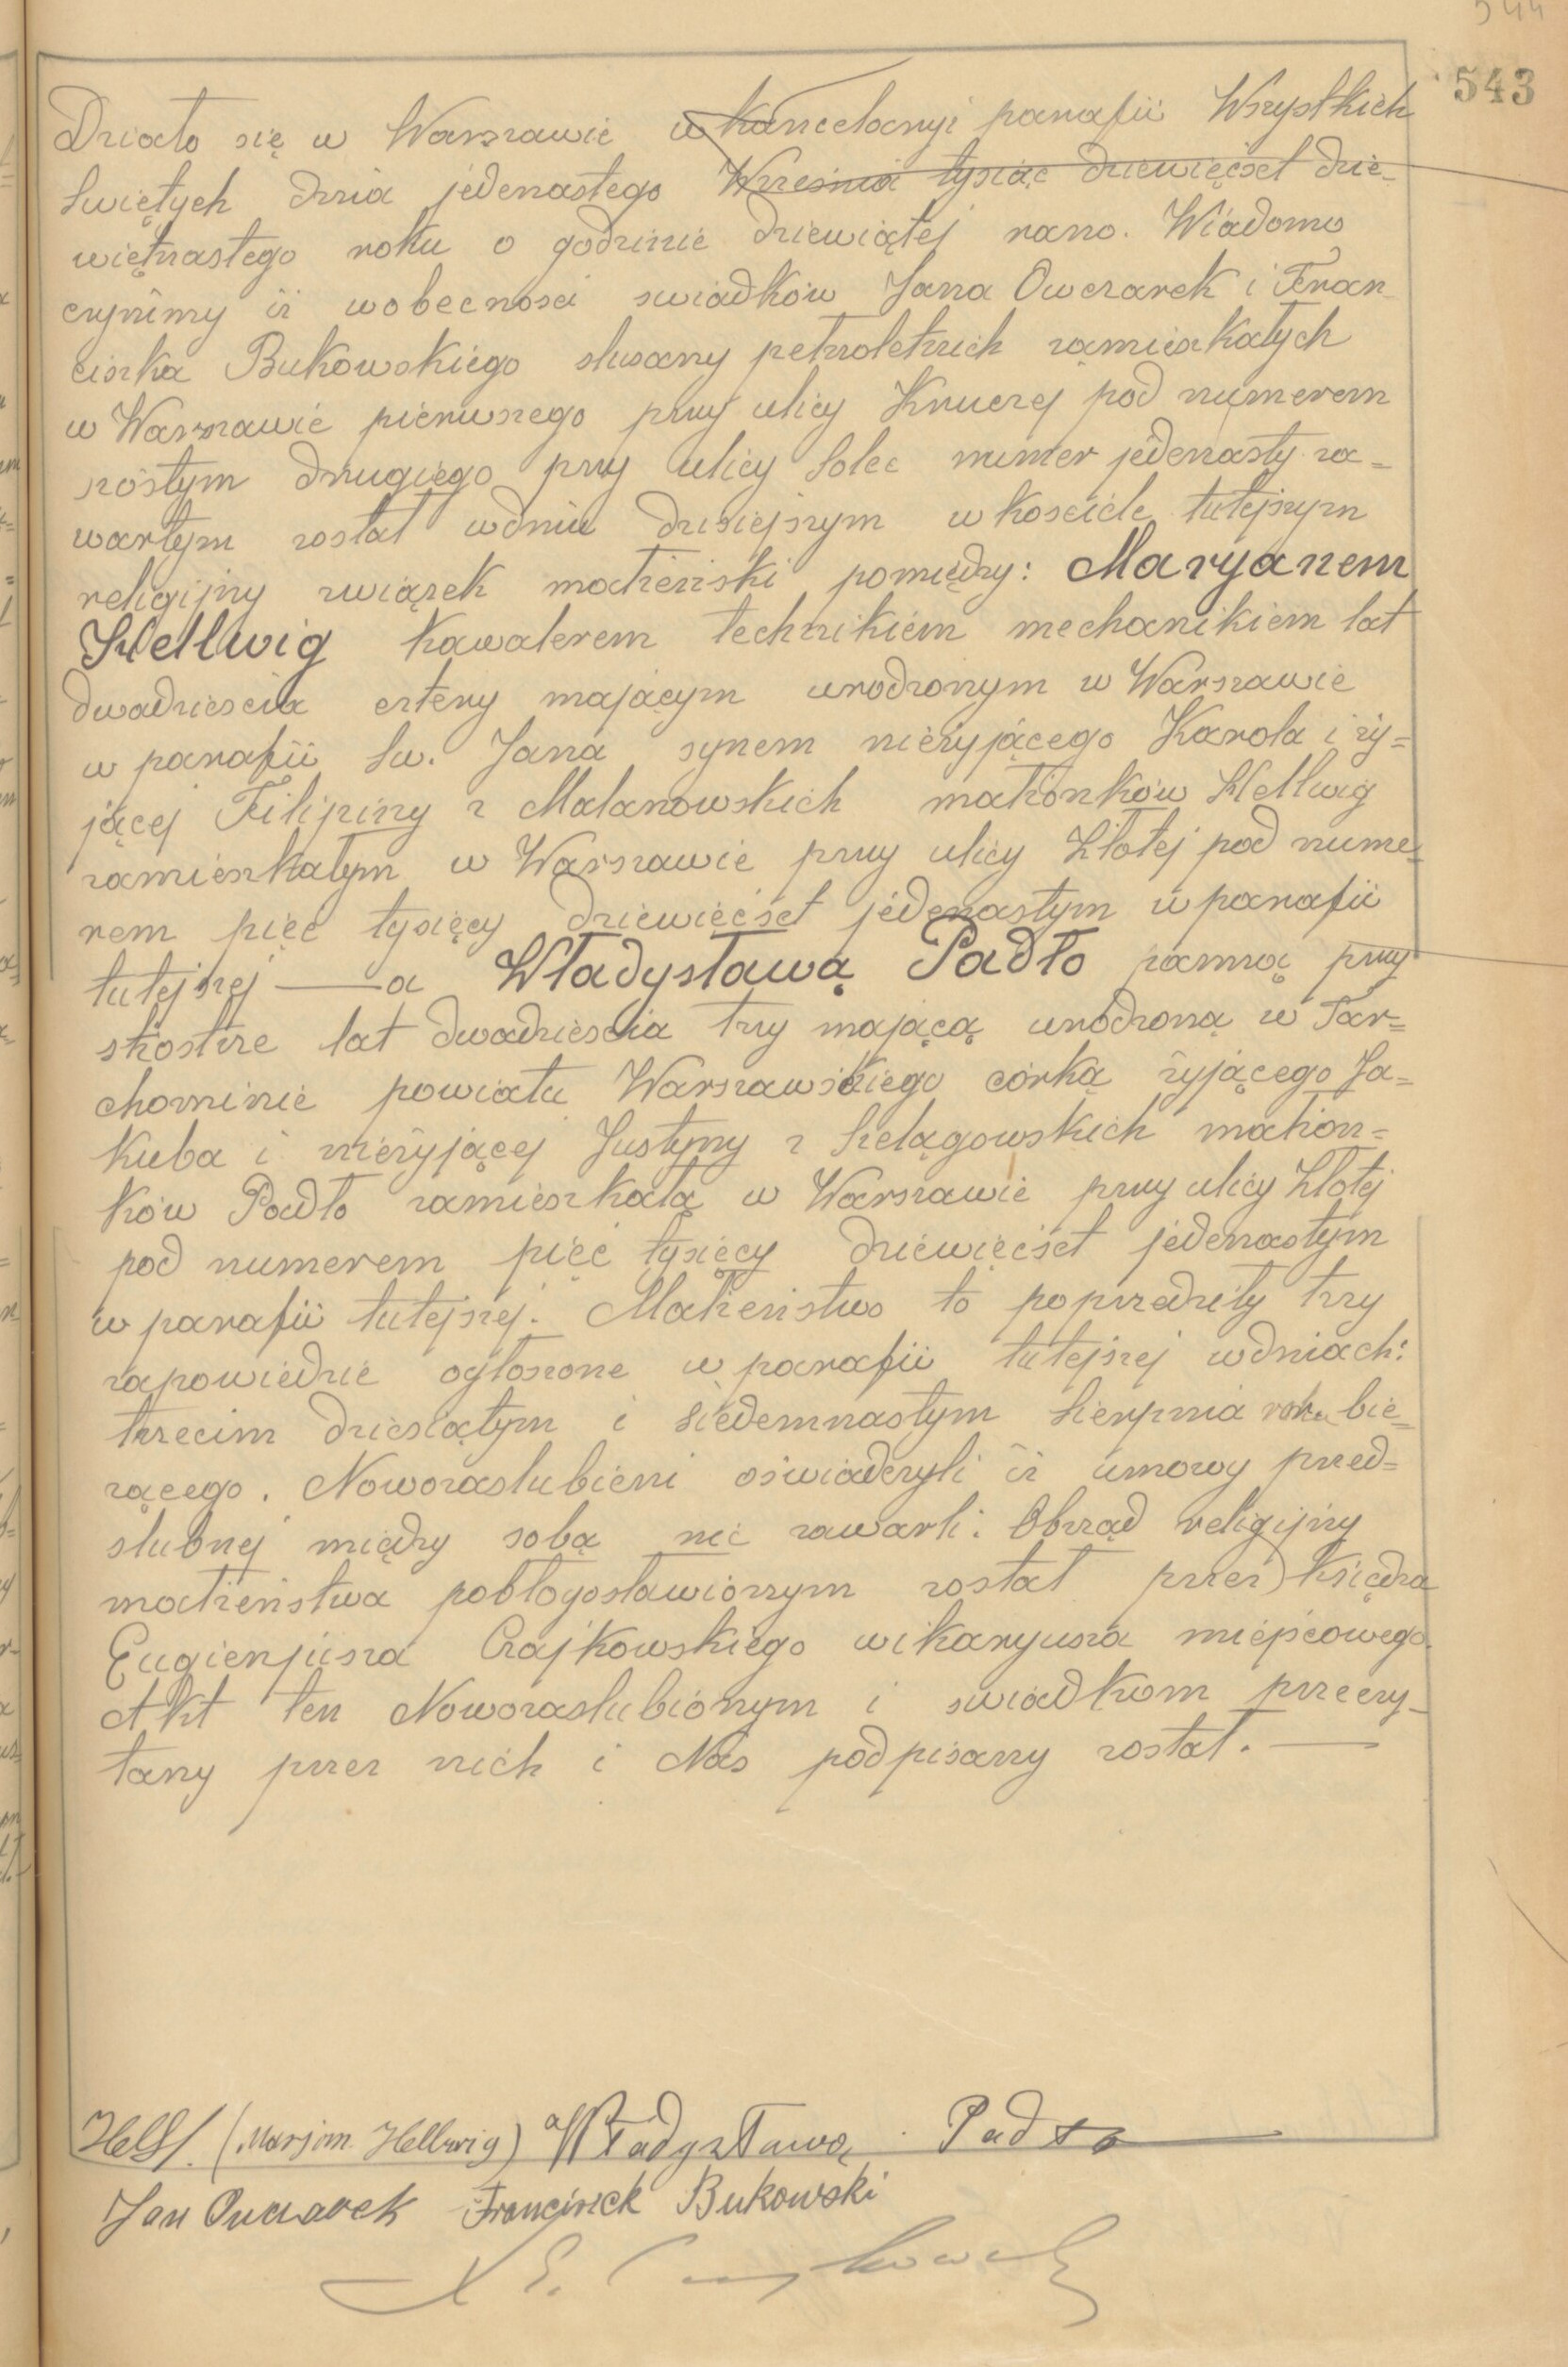 544
543
Działo się w Warszawie w kancelaryi parafii Wszystkich
Swiętych dnia jedenastego Wrzesnia tysiąc dziewięćset dzie-
więtnastego roku o godzinie dziewiątej rano. Wiadomo
czynimy iż wobecnosci swiadków Jana Owczarek i Fran-
ciszka Bukowskiego slusarzy petnoletnich zamieszkałych
w Warszawie pierwszego przy ulicy Kruczej pod numerem
szóstym drugiego przy ulicy Solec numer jedenasty za=
wartym został wdniu dzisiejszym wkosciele tutejszym
religijny związek małżeński pomiędzy: Maryanem
Hellwig Kawalerem technikiem mechanikiem lat
dwadziescia cztery mającym urodzonym w Warszawie
w parafii Sw. Jana synem nieżyjącego Karola i ży=
jącej Filipiny z Malanowskich małżonków Hellwig
zamieszkałym w Warszawie przy ulicy Złotej pod nume-
rem pięć tysięcy dziewięćset jedenastym w parafii
tutejszej — a Władysławą Padło panną przy
skostrze lat dwadziescia trzy mającą urodzoną w Tar=
chominie powiatu Warszawskiego córką żyjącego Ja=
kuba i nieżyjącej Justyny z Szelągowskich małżon=
ków Padło zamieszkałą w Warszawie przy ulicy Złotej
pod numerem pięć tysięcy dziewięćset jedenastym
w parafii tutejszej. Małżeństwo to poprzedziły trzy
zapowiedzie ogłoszone w parafii tutejszej wdniach:
trzecim dziesiątym i siedemnastym Sierpnia roku bie-
żącego. Nowozaslubieni oświadczyli iż umowy przed=
slubnej między sobą nie zawarli. Obrząd religijny
małżeństwa pobłogosławionym został przez księdza
Eugienjusza Czajkowskiego wikaryusza miejscowego.
Akt ten Nowozaslubionym i swiadkom przeczy-
tany przez nich i Nas podpisany został. —
Hell. (Marjan Hellwig) Władysława Padło
Jan Owczarek Franciszek Bukowski